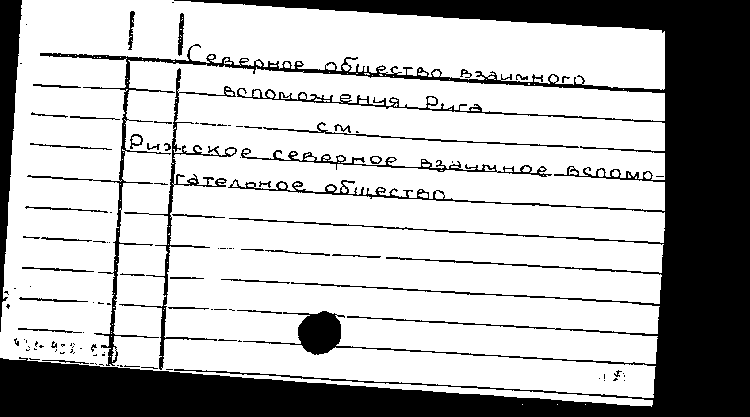 Северное общество взаимного
вспоможения. Рига
см.
Рижское северное взаимное вспомо-
гательное общество.